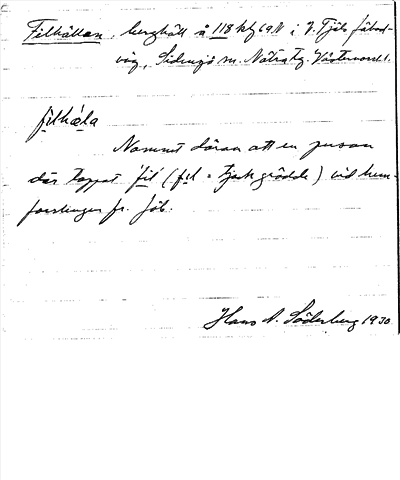 Filhällan, berghäll å 118 kf 69 N i V. Fjäls fäbod-
väg, Sidensjö sn. Nätra tg. Västernorrl.
filhæla
Namnet därav att en person
där tappat fil (fil = tjock grädde) vid hem-
forslingen fr. fäb.
Hans A. Söderberg 1930